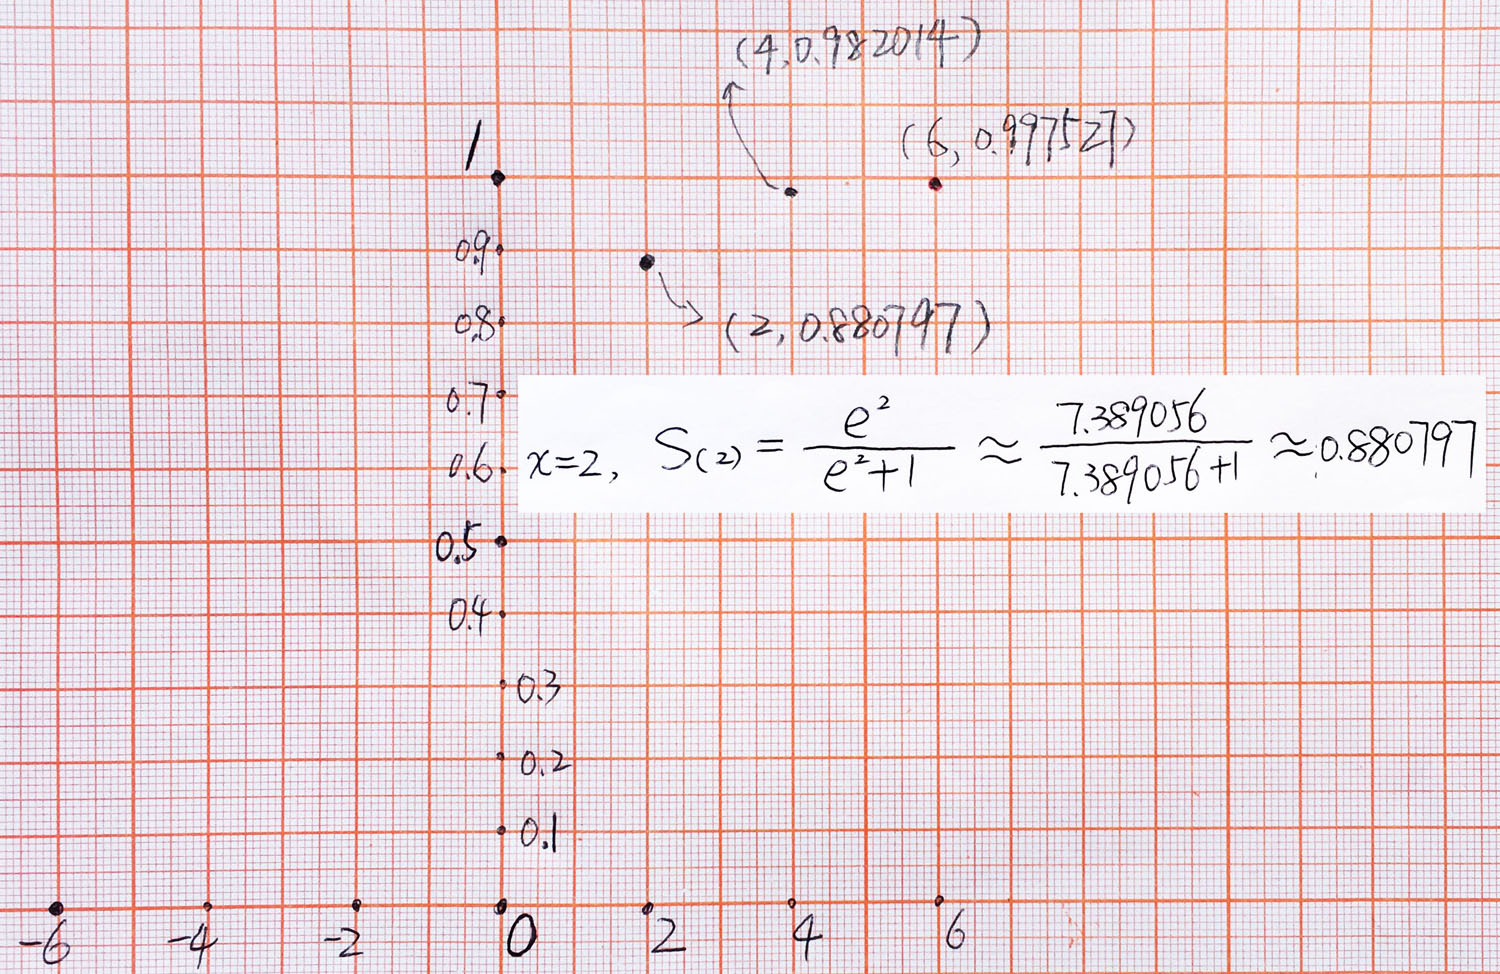 (4, 0.982014)
(6, 0.997527)
1
0.9
0.8
(2, 0.880797)
0.7
0.6
x=2, S(2) = e²/(e²+1) ≈ 7.389056/(7.389056+1) ≈ 0.880797
0.5
0.4
0.3
0.2
0.1
-6 -4 -2 0 2 4 6